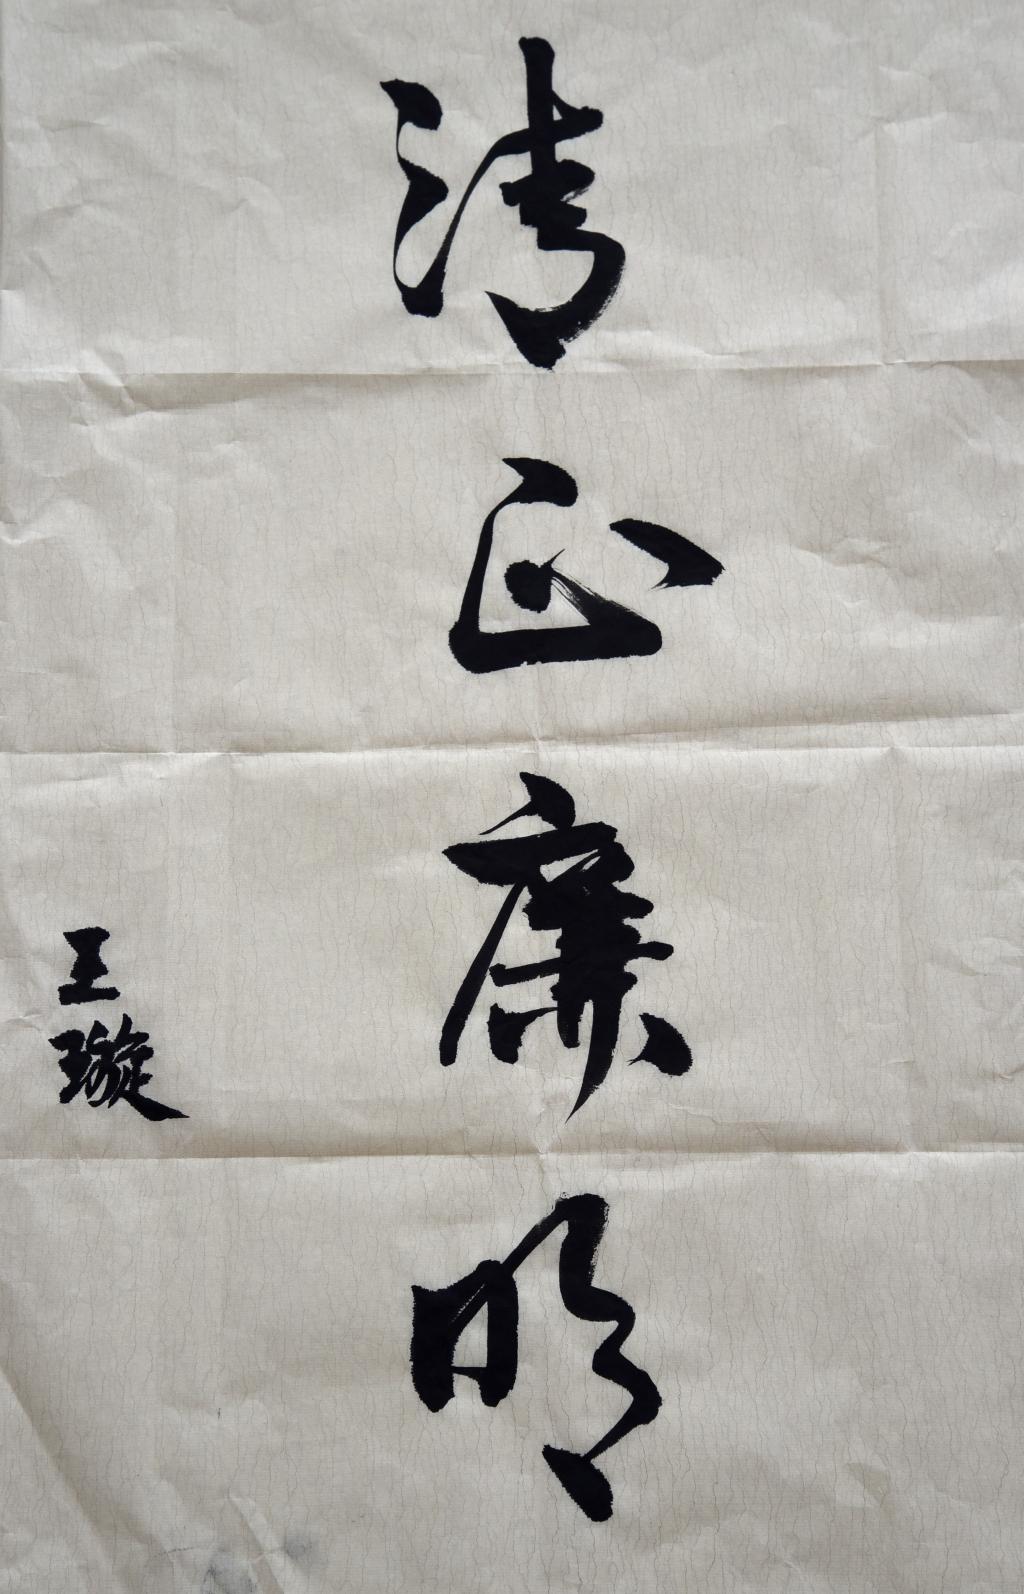 清正廉明
王璇